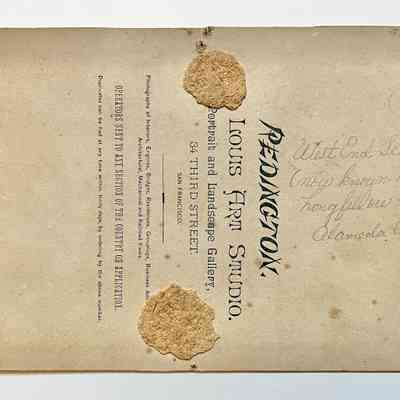 West End Sc
(now known
Longfellow
Alameda, C
REDINGTON.
LOUIS ART STUDIO.
Portrait and Landscape Gallery,
34 THIRD STREET.
SAN FRANCISCO.
Photographs of Interiors, Engines, Bridges, Residences, Groupings, Business
Architectural, Mechanical and Railroad Views.
OPERATORS SENT TO ANY SECTION OF THE COUNTRY ON APPLICATION.
Duplicates can be had at any time within thirty days by ordering by the above number.